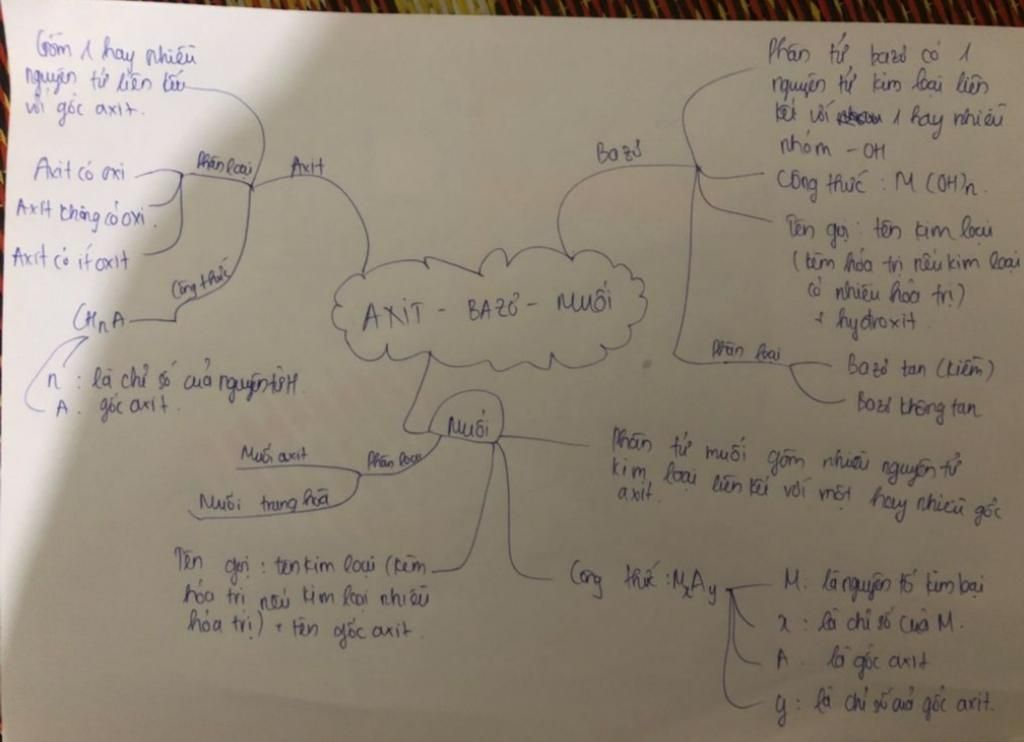 Gồm 1 hay nhiều
nguyên tử liên kết
với gốc axit.
Axit
Phân loại
Axit có oxi
Axit không có oxi.
Axit có ít oxit
Công thức
HnA
n : là chỉ số của nguyên tử H.
A : gốc axit.
AXIT - BAZƠ - MUỐI
Bazơ
Phân tử bazơ có 1
nguyên tử kim loại liên
kết với 1 hay nhiều
nhóm - OH
Công thức : M(OH)n.
Tên gọi : tên kim loại
(kèm hóa trị nếu kim loại
có nhiều hóa trị)
+ hydroxit.
Phân loại
Bazơ tan (kiềm)
Bazơ không tan
Muối
Phân loại
Muối axit
Muối trung hoà
Phân tử muối gồm nhiều nguyên tử
kim loại liên kết với một hay nhiều gốc
axit.
Tên gọi : tên kim loại (kèm
hóa trị nếu kim loại nhiều
hóa trị) + tên gốc axit.
Công thức : MxAy
M : là nguyên tố kim loại
x : là chỉ số của M.
A : là gốc axit
y : là chỉ số của gốc axit.